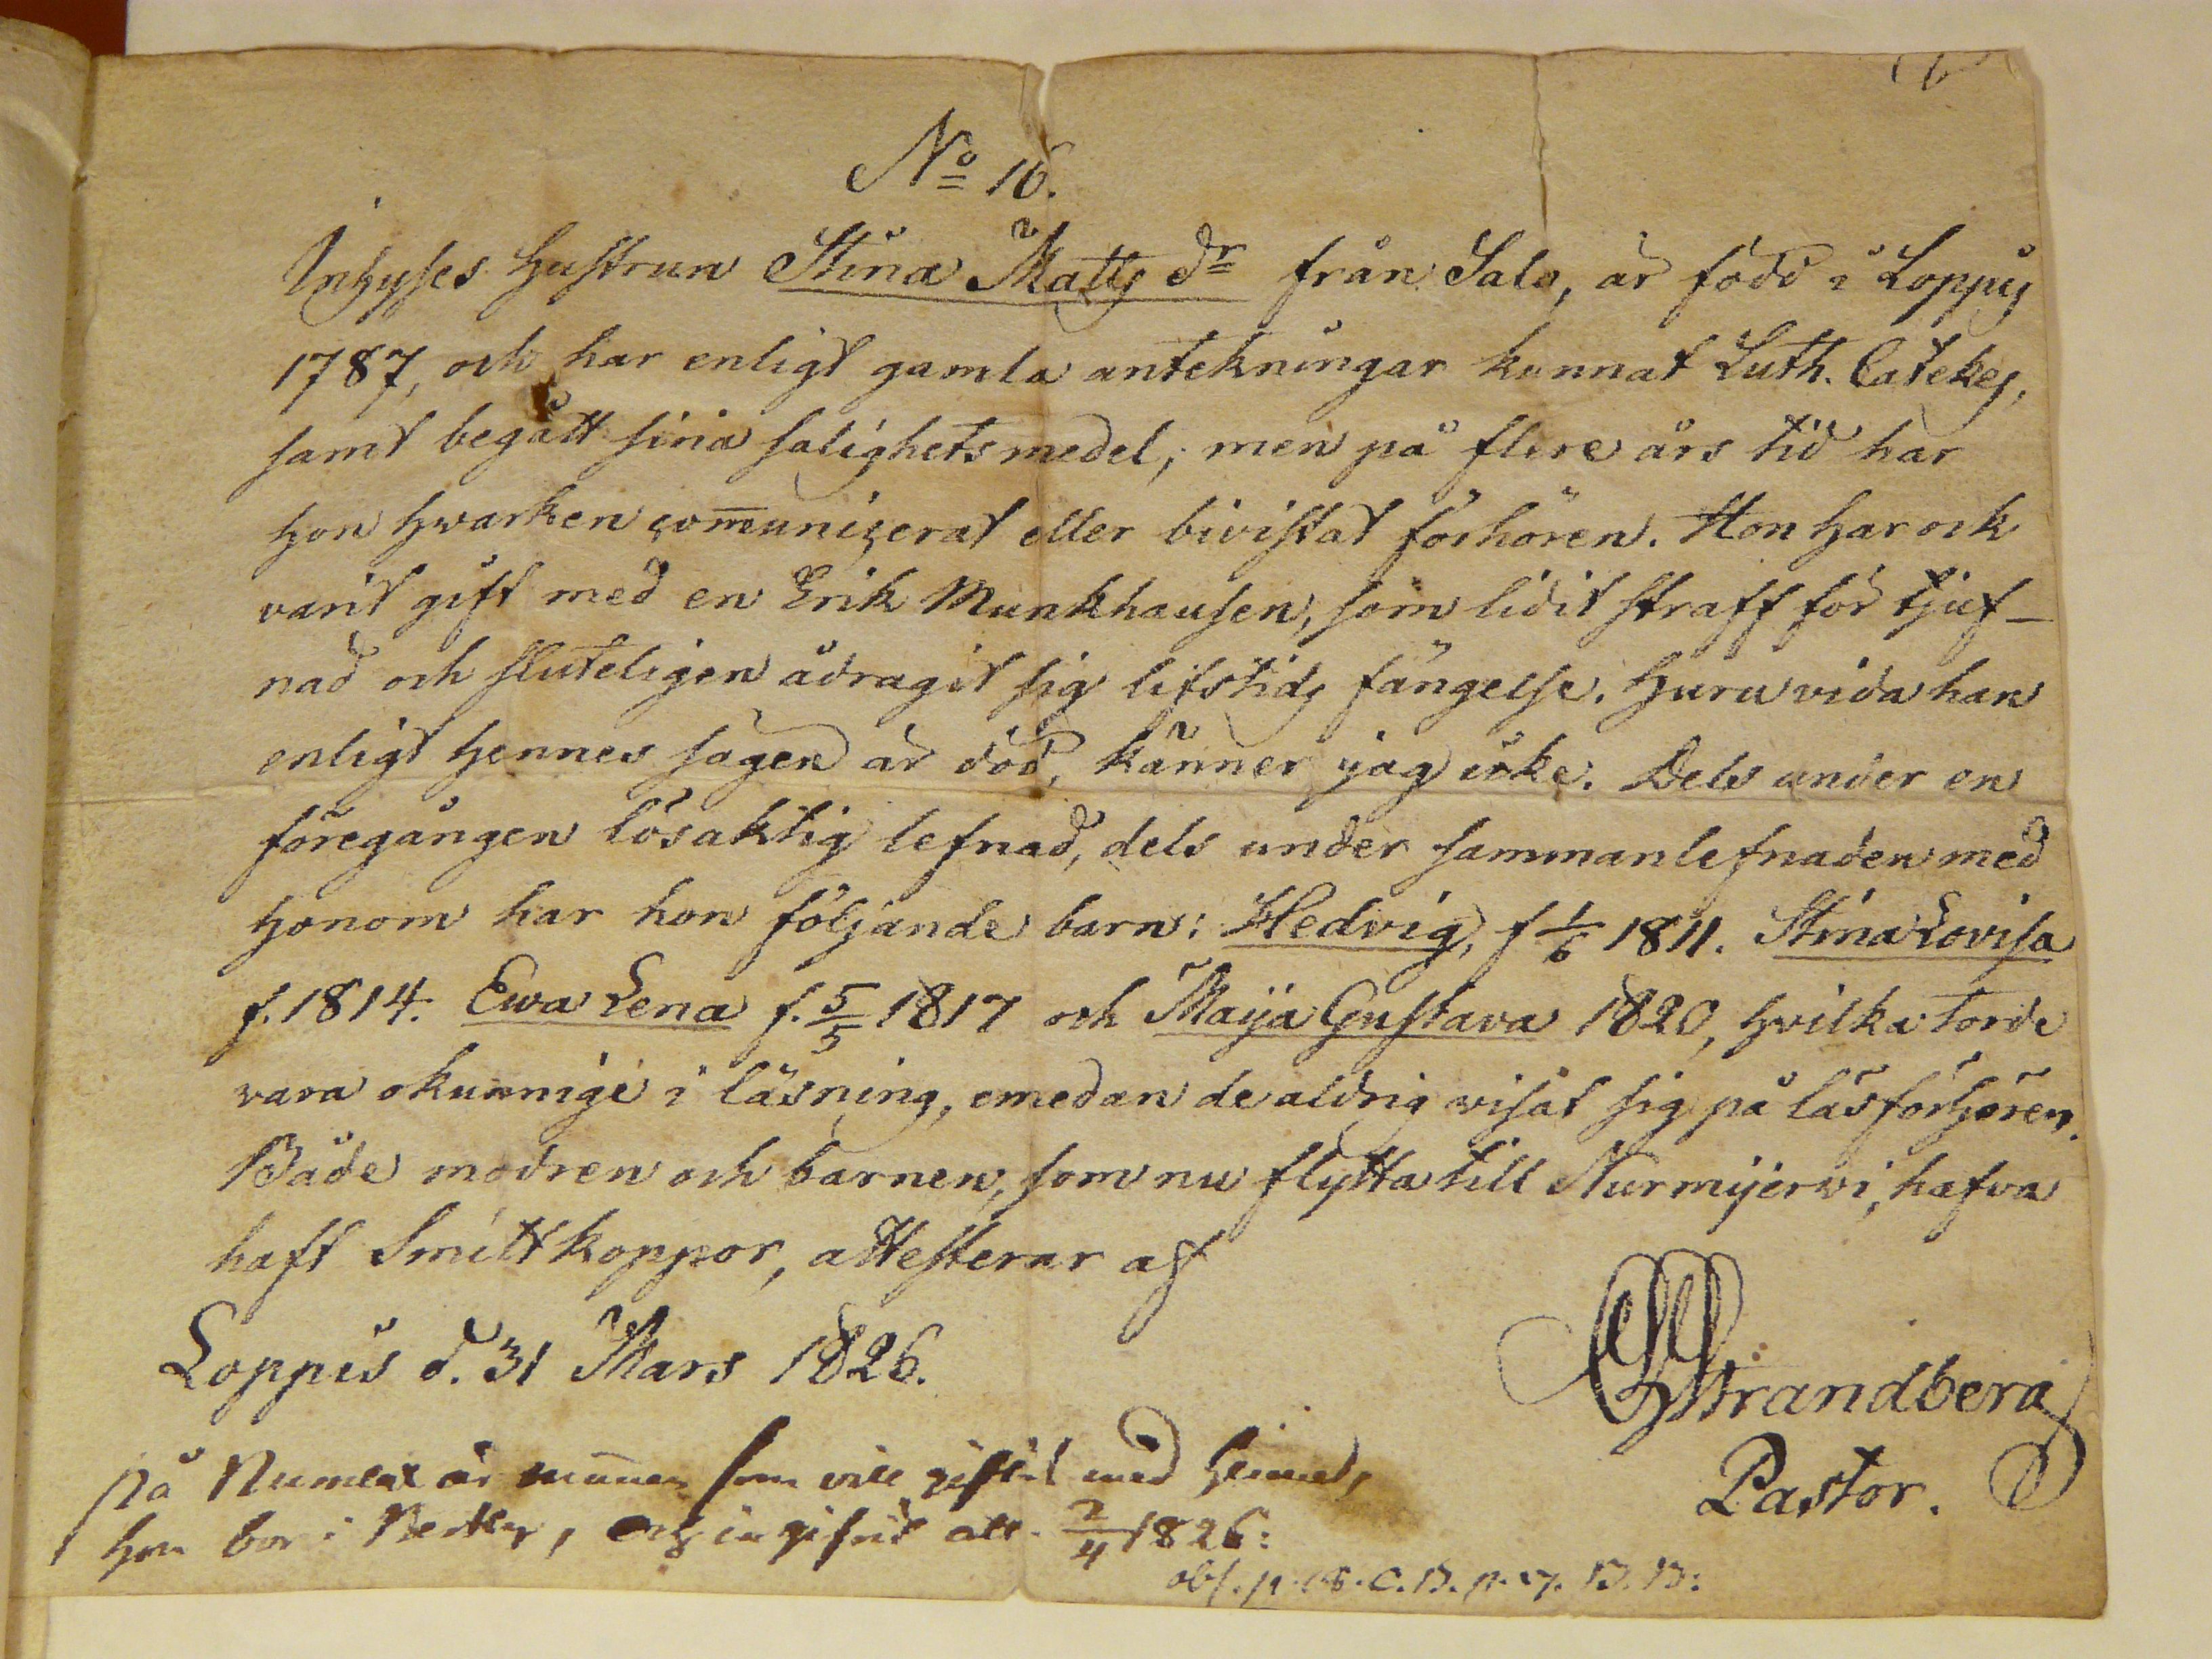 No 16.
Inhyses hustrun Stina Matts dr från Salo, är född i Loppis
1787, och har enligt gamla antekningar kunnat Luth. Catekes,
samt begått sina salighetsmedel; men på flere års tid har
hon hwarken communizerat eller bivistat förhören. Hon har ock
varit gift med en Erik Munkhausen, som lidit straff för tjuf-
nad och sluteligen ådragit sig lifstids fängelse. Huruvida han
enligt hennes sagen är död, känner jag icke. Dels under en
föregången lösaktig lefnad, dels under sammanlefnaden med
honom har hon följande barn: Hedvig, f 1/6 1811. Stina Lovisa
f. 1814. Ewa Lena f. 5/5 1817 och Maija Gustava 1820, hvilka torde
vara okunnige i läsning, emedan de aldrig visat sig på läsförhören.
Både modren och barnen, som nu flytta till Nurmijerwi, hafva
haft Smittkoppor, attesterar af
Loppis d. 31 Mars 1826.
Strandberg
Pastor.
på Numlax är som vill med
hon bor i 2/4 1826: